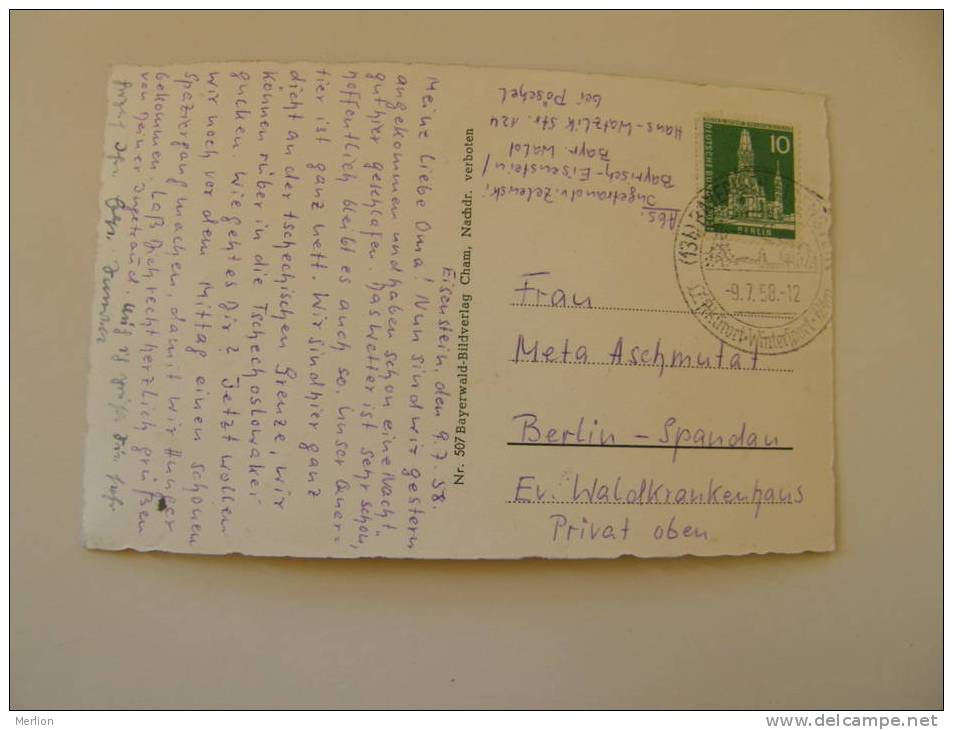 Eisenstein, den 9.7.58.
Meine liebe Oma! Nun sind wir gestern
angekommen und haben schon eine Nacht
gut hier geschlafen. Das Wetter ist sehr schön,
hoffentlich bleibt es auch so. Unser Quar-
tier ist ganz nett. Wir sind hier ganz
dicht an der tschechischen Grenze, wir
können rüber in die Tschechoslowakei
gucken. Wie geht es Dir? Jetzt wollen
wir noch vor dem Mittag einen schönen
Spaziergang machen, damit wir Hunger
bekommen. Laß Dich recht herzlich grüßen
von Deiner Ingetraud.
Nr. 507 Bayerwald-Bildverlag Cham, Nachdr. verboten
Abs:
Ingetraud v. Zelewski
Bayrisch-Eisenstein/
Bayr. Wald
Hans-Watzlik Str. 124
bei Pöschel
10
DEUTSCHE BUNDESPOST
BERLIN
(13b)
-9.7.58.-12
Wintersport
Frau
Meta Aschmutat
Berlin - Spandau
Ev. Waldkrankenhaus
Privat oben
Merlion
http://www.delcampe.net